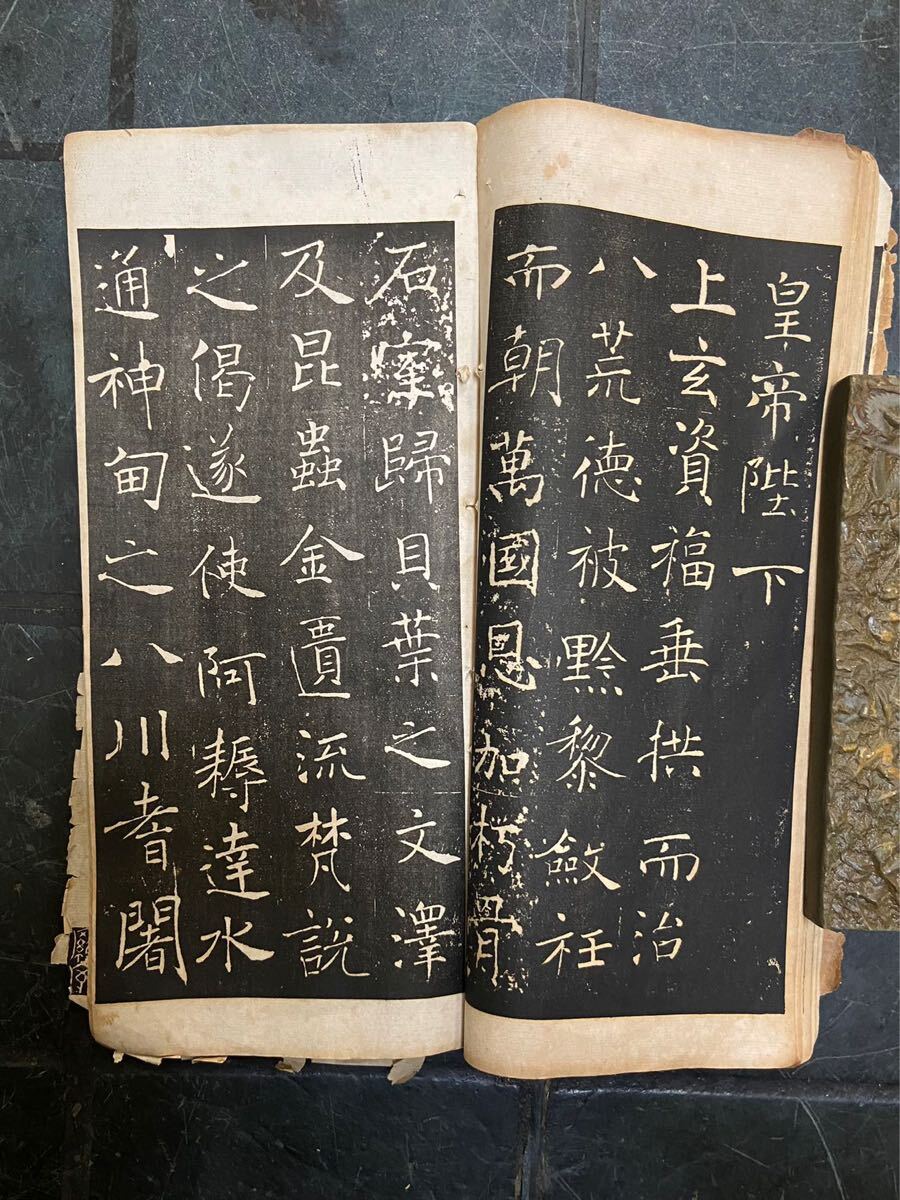 皇帝陛下
上玄資福垂拱而治
八荒德被黔黎斂衽
而朝萬國恩加朽骨
石室歸貝葉之文澤
及昆蟲金匱流梵說
之偈遂使阿耨達水
通神甸之八川耆闍